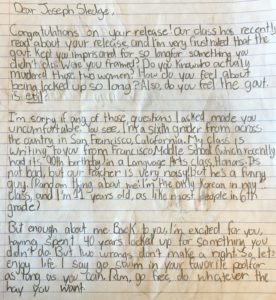 Dear Joseph Sledge,
Congratulations on your release! Our class has recently
read about your release, and I'm very frustrated that the
govt. kept you imprisoned for so long for something you
didn't do. Were you framed? Do you know who actually
murdered those two women? How do you feel about
being locked up so long? Also, do you feel the govt.
is evil?
I'm sorry if any of those questions I asked made you
uncomfortable. You see, I'm a sixth grader from across
the country in San Francisco, California. My class is
writing to you from Francisco Middle School (which recently
had its 90th birthday) in a Language Arts class, Honors. It's
not bad, but our teacher is very noisy, but he's a funny
guy. (Random thing about me: I'm the only Korean in my
class, and I'm 11 years old, as like most people in 6th
grade)
But enough about me. Back to you, I'm excited for you,
having spent 40 years locked up for something you
didn't do. But two wrongs don't make a right. So, let's
enjoy life. I say go swim in your favorite pool for
as long as you can. Run, go free, do whatever the
hay you want.